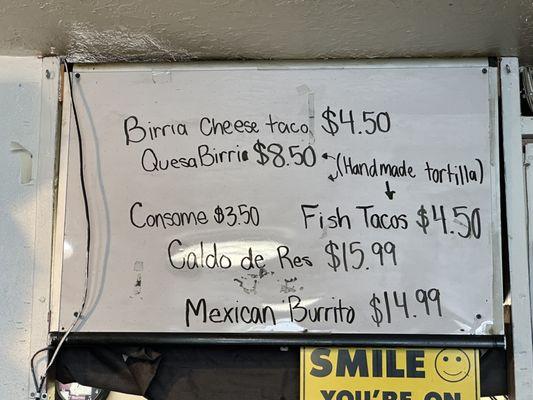 Birria Cheese taco $4.50
QuesaBirria $8.50 (Handmade tortilla)
Consome $3.50 Fish Tacos $4.50
Caldo de Res $15.99
Mexican Burrito $14.99
SMILE
YOU'RE ON